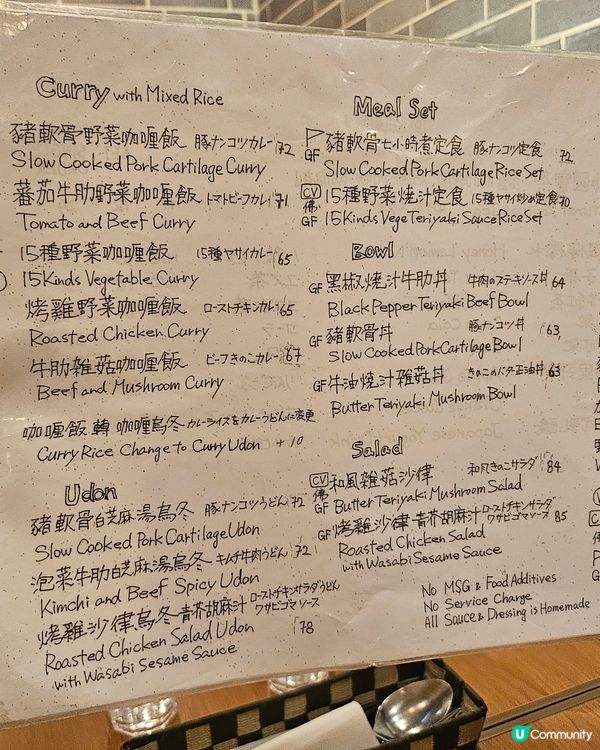 Curry with Mixed Rice
豬軟骨野菜咖喱飯 豚ナンコツカレー 72
Slow Cooked Pork Cartilage Curry
蕃茄牛肋野菜咖喱飯 トマトビーフカレー 71
Tomato and Beef Curry
15種野菜咖喱飯 15種ヤサイカレー 65
15 Kinds Vegetable Curry
烤雞野菜咖喱飯 ローストチキンカレー 65
Roasted Chicken Curry
牛肋雜菇咖喱飯 ビーフきのこカレー 67
Beef and Mushroom Curry
咖喱飯轉咖喱烏冬 カレーライスをカレーうどんに変更
Curry Rice Change to Curry Udon +10
Udon
豬軟骨白芝麻湯烏冬 豚ナンコツうどん 72
Slow Cooked Pork Cartilage Udon
泡菜牛肋白芝麻湯烏冬 キムチ牛肉うどん 72
Kimchi and Beef Spicy Udon
烤雞沙律烏冬-青芥胡麻汁 ローストチキンサラダうどん
ワサビゴマソース 78
Roasted Chicken Salad Udon
with Wasabi Sesame Sauce
Meal Set
GF 豬軟骨七小時煮定食 豚ナンコツ定食 72
Slow Cooked Pork Cartilage Rice Set
CV 佛 GF 15種野菜燒汁定食 15種ヤサイ炒め定食 70
15 Kinds Vege Teriyaki Sauce Rice Set
Bowl
GF 黑椒燒汁牛肋丼 牛肉のステーキソース丼 64
Black Pepper Teriyaki Beef Bowl
GF 豬軟骨丼 豚ナンコツ丼 63
Slow Cooked Pork Cartilage Bowl
GF 牛油燒汁雜菇丼 きのこのバター正油丼 63
Butter Teriyaki Mushroom Bowl
Salad
CV 佛 GF 和風雜菇沙律 和風きのこサラダ 84
Butter Teriyaki Mushroom Salad
GF 烤雞沙律-青芥胡麻汁 ローストチキンサラダ
ワサビゴマソース 85
Roasted Chicken Salad
with Wasabi Sesame Sauce
No MSG & Food Additives
No Service Charge
All Sauce & Dressing is Homemade
U Community